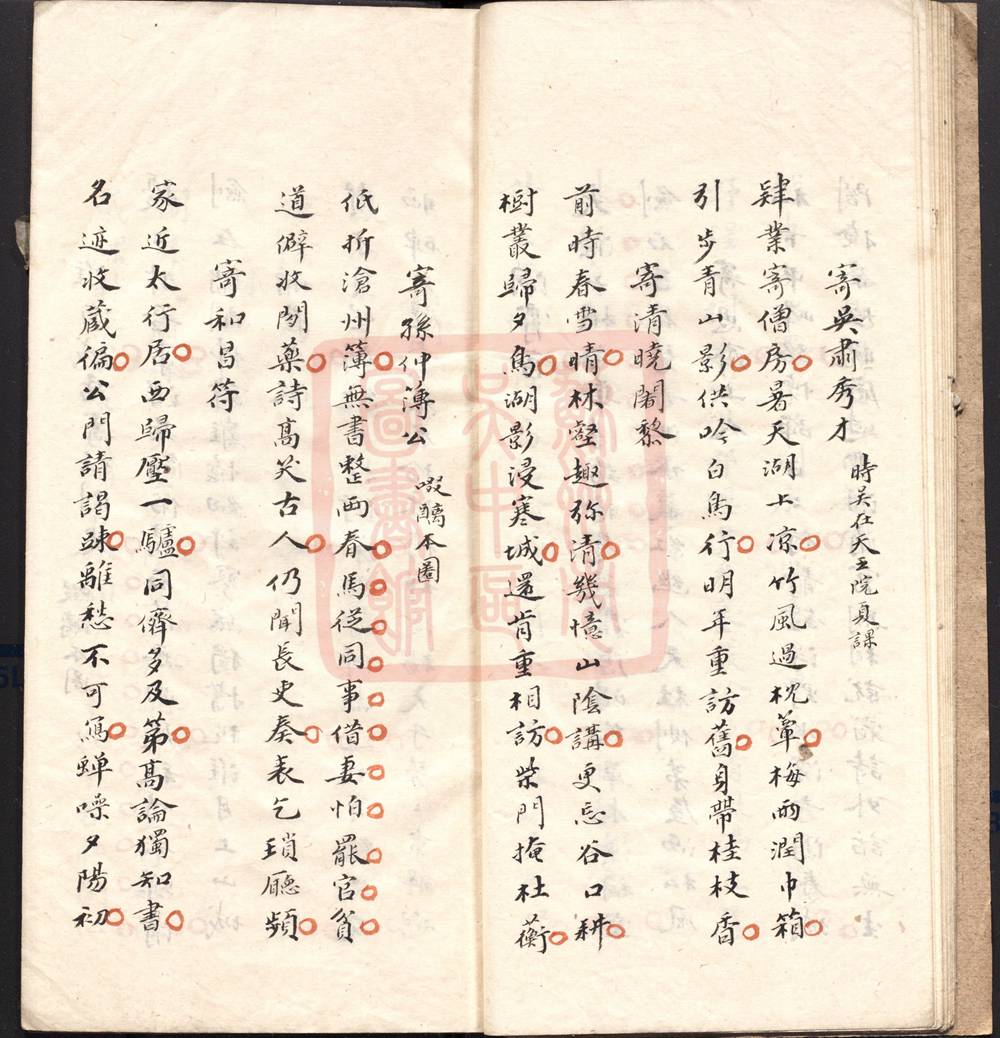 寄吳肅秀才 時吳在天王院夏課
肄業寄僧房暑天湖上凉竹風過枕簟梅雨潤巾箱
引步青山影供吟白鳥行明年重訪舊身帶桂枝香
寄清曉闍黎
前時春雪晴林壑趣弥清幾憶山陰講更忘谷口耕
樹叢歸夕鳥湖影浸寒城還肯重相訪柴門掩杜蘅
寄孫仲簿公 啜醨本圈
低折滄州簿無書整两春馬從同事借妻怕罷官貧
道僻收閑藥詩髙笑古人仍聞長吏奏表乞瑣廳頻
寄和昌符
家近太行居西歸壓一驢同儕多及第髙論獨知書
名迹收蔵徧公門請謁踈離愁不可寫蟬噪夕陽初